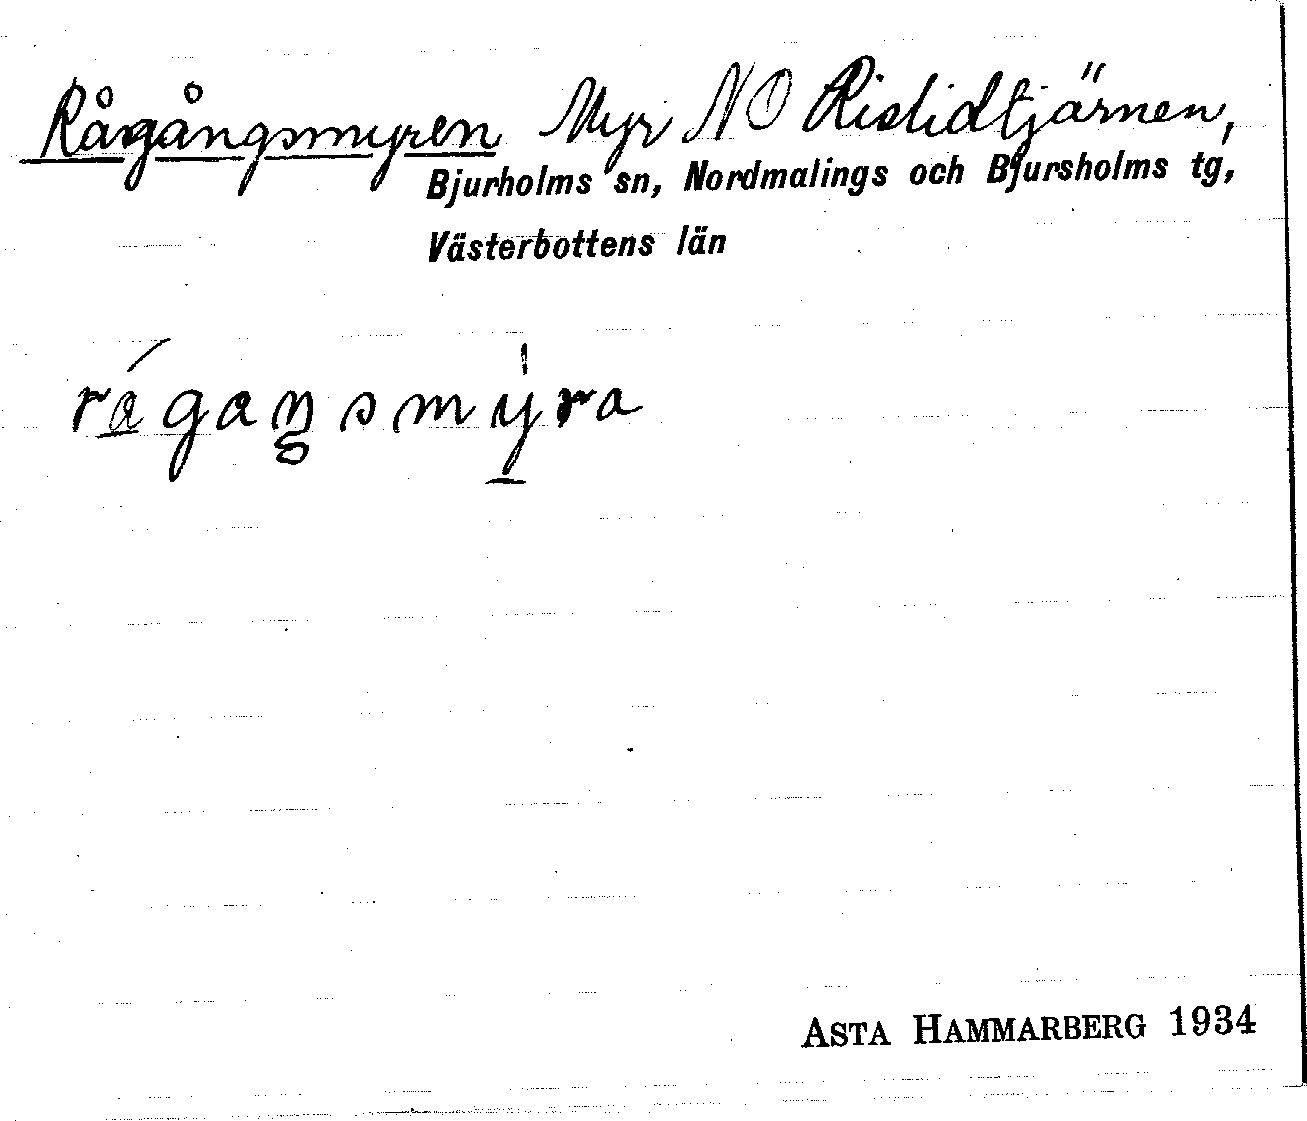 Rågångsmyren Myr NO Rislidtjärnen,
Bjurholms sn, Nordmalings och Bjursholms tg,
Västerbottens län
rágaŋsmy̍ra
ASTA HAMMARBERG 1934